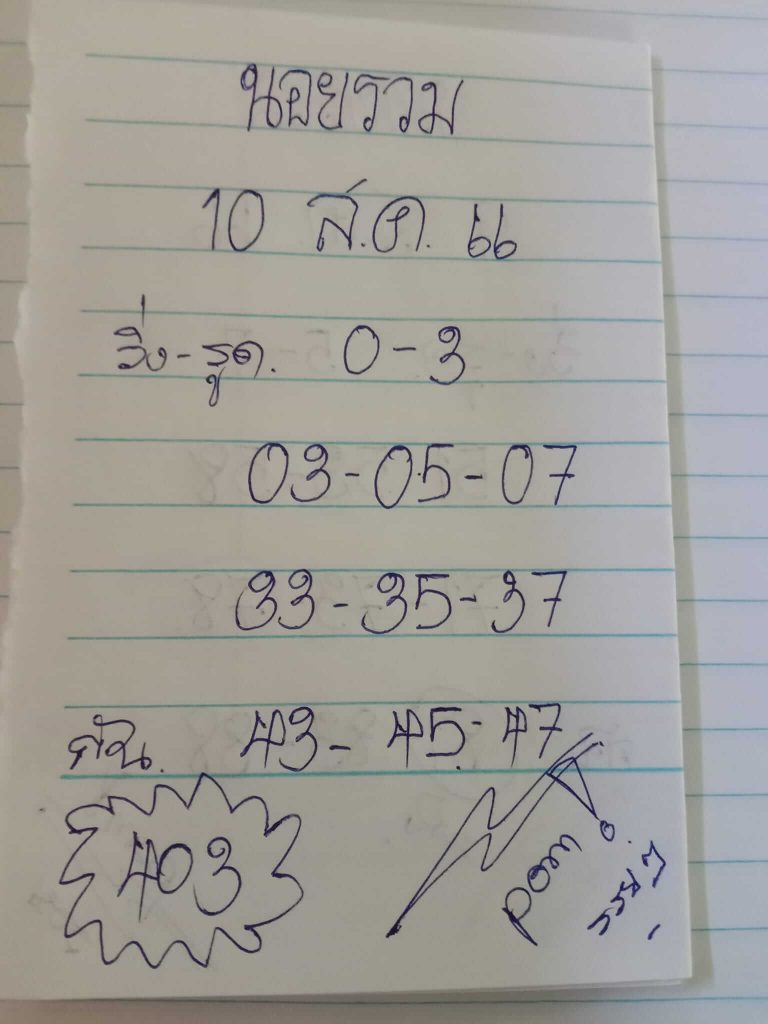 นอยรวม
10 ส.ค. 66
วิ่ง-รูด. 0-3
03-05-07
33-35-37
กัน. 43-45-47
403
pom